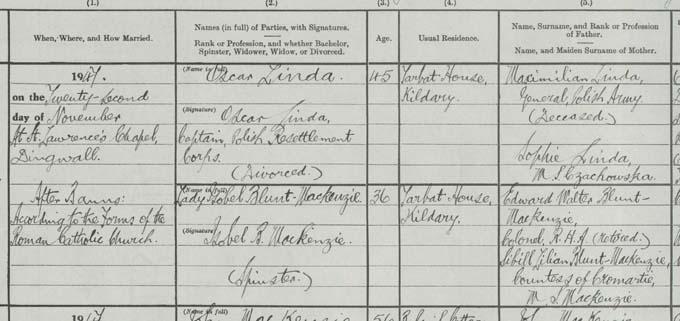 (1.)
(2.)
(3.)
(4.)
(5.)
When, Where, and How Married.
Names (in full) of Parties, with Signatures.
Rank or Profession, and whether Bachelor,
Spinster, Widower, Widow, or Divorced.
Age.
Usual Residence.
Name, Surname, and Rank or Profession
of Father.
Name, and Maiden Surname of Mother.
1947.
on the Twenty-Second
day of November
At St. Lawrence's Chapel,
Dingwall.
After Banns:
According to the Forms of the
Roman Catholic Church.
(Name in full)
Oscar Linda.
(Signature)
Oscar Linda,
Captain, Polish Resettlement
Corps.
(Divorced.)
45
Tarbat House,
Kildary.
Maximilian Linda,
General, Polish Army
(Deceased.)
Sophie Linda,
M.S. Czachowska.
(Name in full)
Lady Isobel Blunt-Mackenzie.
(Signature)
Isobel B. Mackenzie.
(Spinster.)
36
Tarbat House,
Kildary.
Edward Walter Blunt-
Mackenzie,
Colonel, R.H.A (retired.)
Sibill Lilian Blunt-Mackenzie,
Countess of Cromartie,
M.S. Mackenzie.
1947
(Name in full)
Mac Kenzie
56
Mac Kenzie